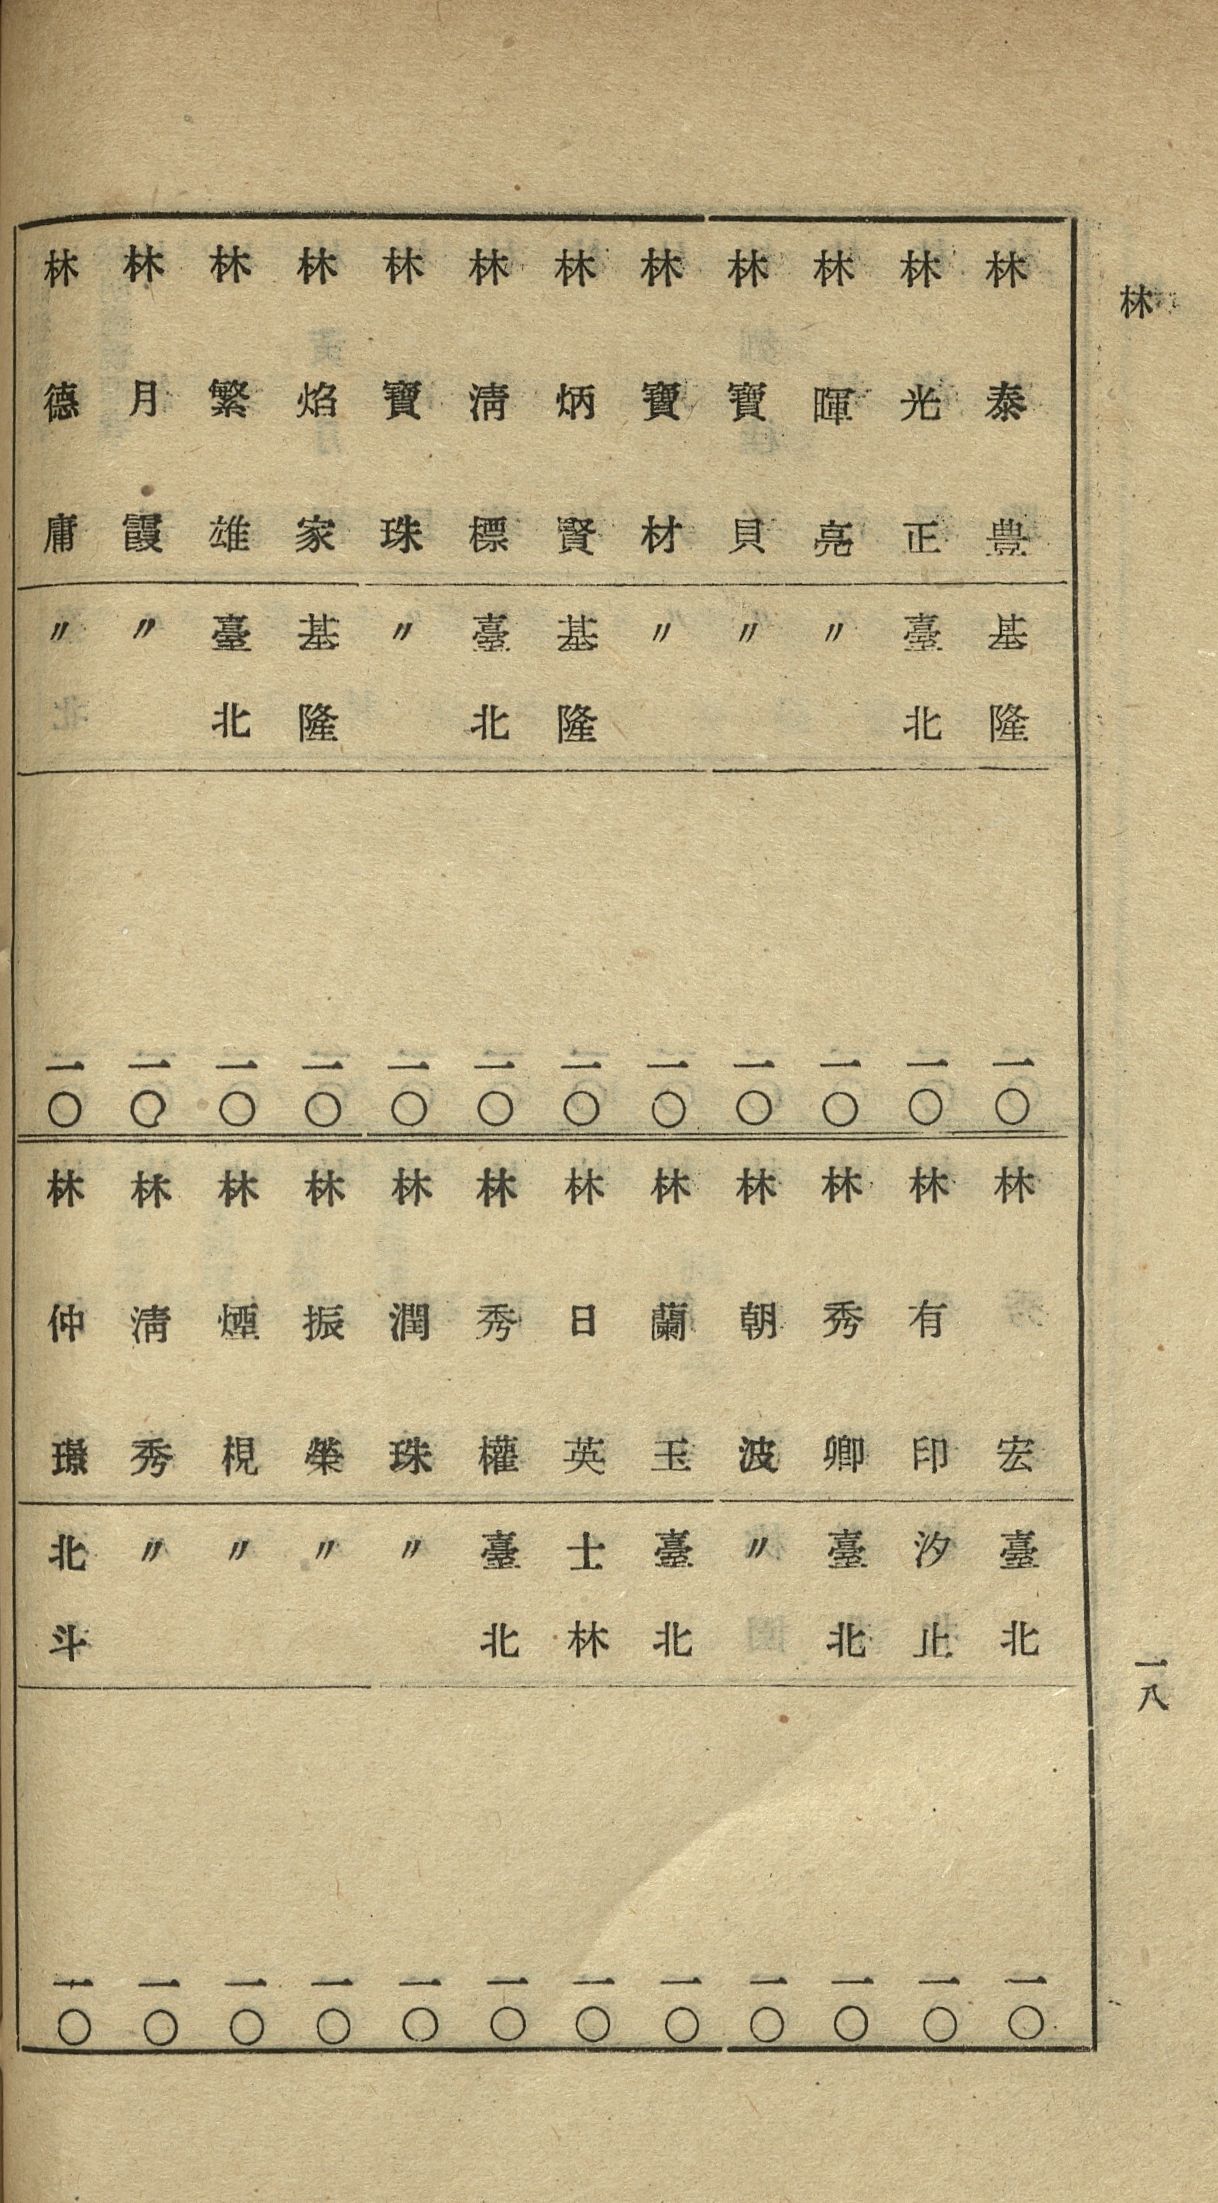 林
一八
林泰豊 基隆 一〇
林光正 臺北 一〇
林暉亮 〃 一〇
林寶貝 〃 一〇
林寶材 〃 一〇
林炳賢 基隆 一〇
林淸標 臺北 一〇
林寶珠 〃 一〇
林焰家 基隆 一〇
林繁雄 臺北 一〇
林月霞 〃 一〇
林德庸 〃 一〇
林宏 臺北 一〇
林有印 汐止 一〇
林秀卿 臺北 一〇
林朝波 〃 一〇
林蘭玉 臺北 一〇
林日英 士林 一〇
林秀權 臺北 一〇
林潤珠 〃 一〇
林振榮 〃 一〇
林煙梘 〃 一〇
林淸秀 〃 一〇
林仲璟 北斗 一〇